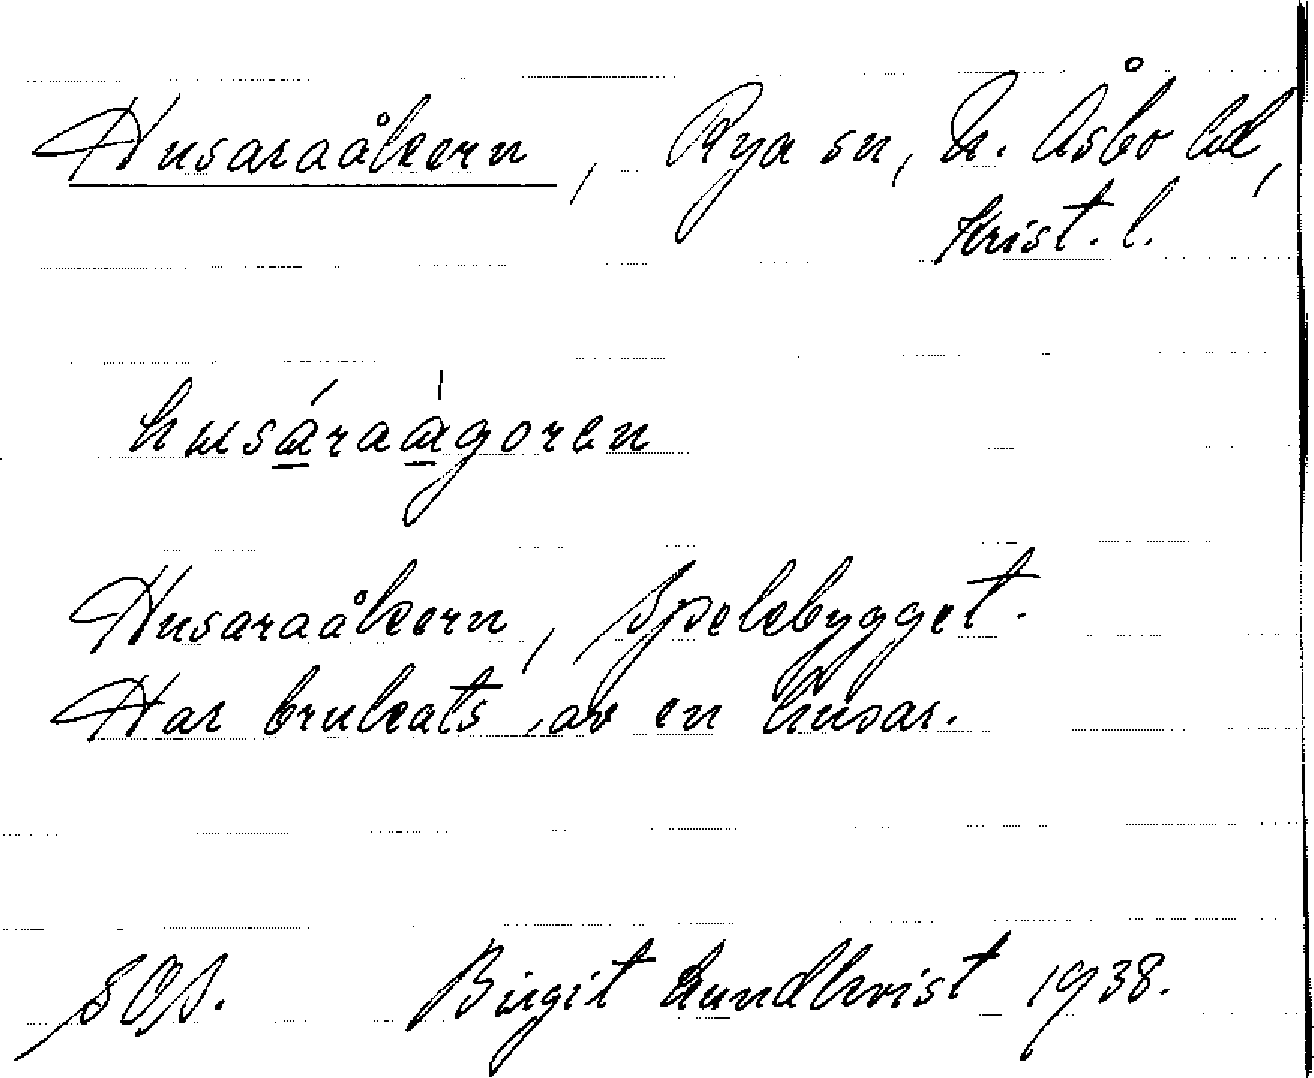 Husaraåkern, Rya sn, N. Åsbo hd,
Krist. l.
husáraågoren
Husaraåkern, Spelebygget.
Har brukats av en husar.
SOS. Birgit Lundkvist 1938.